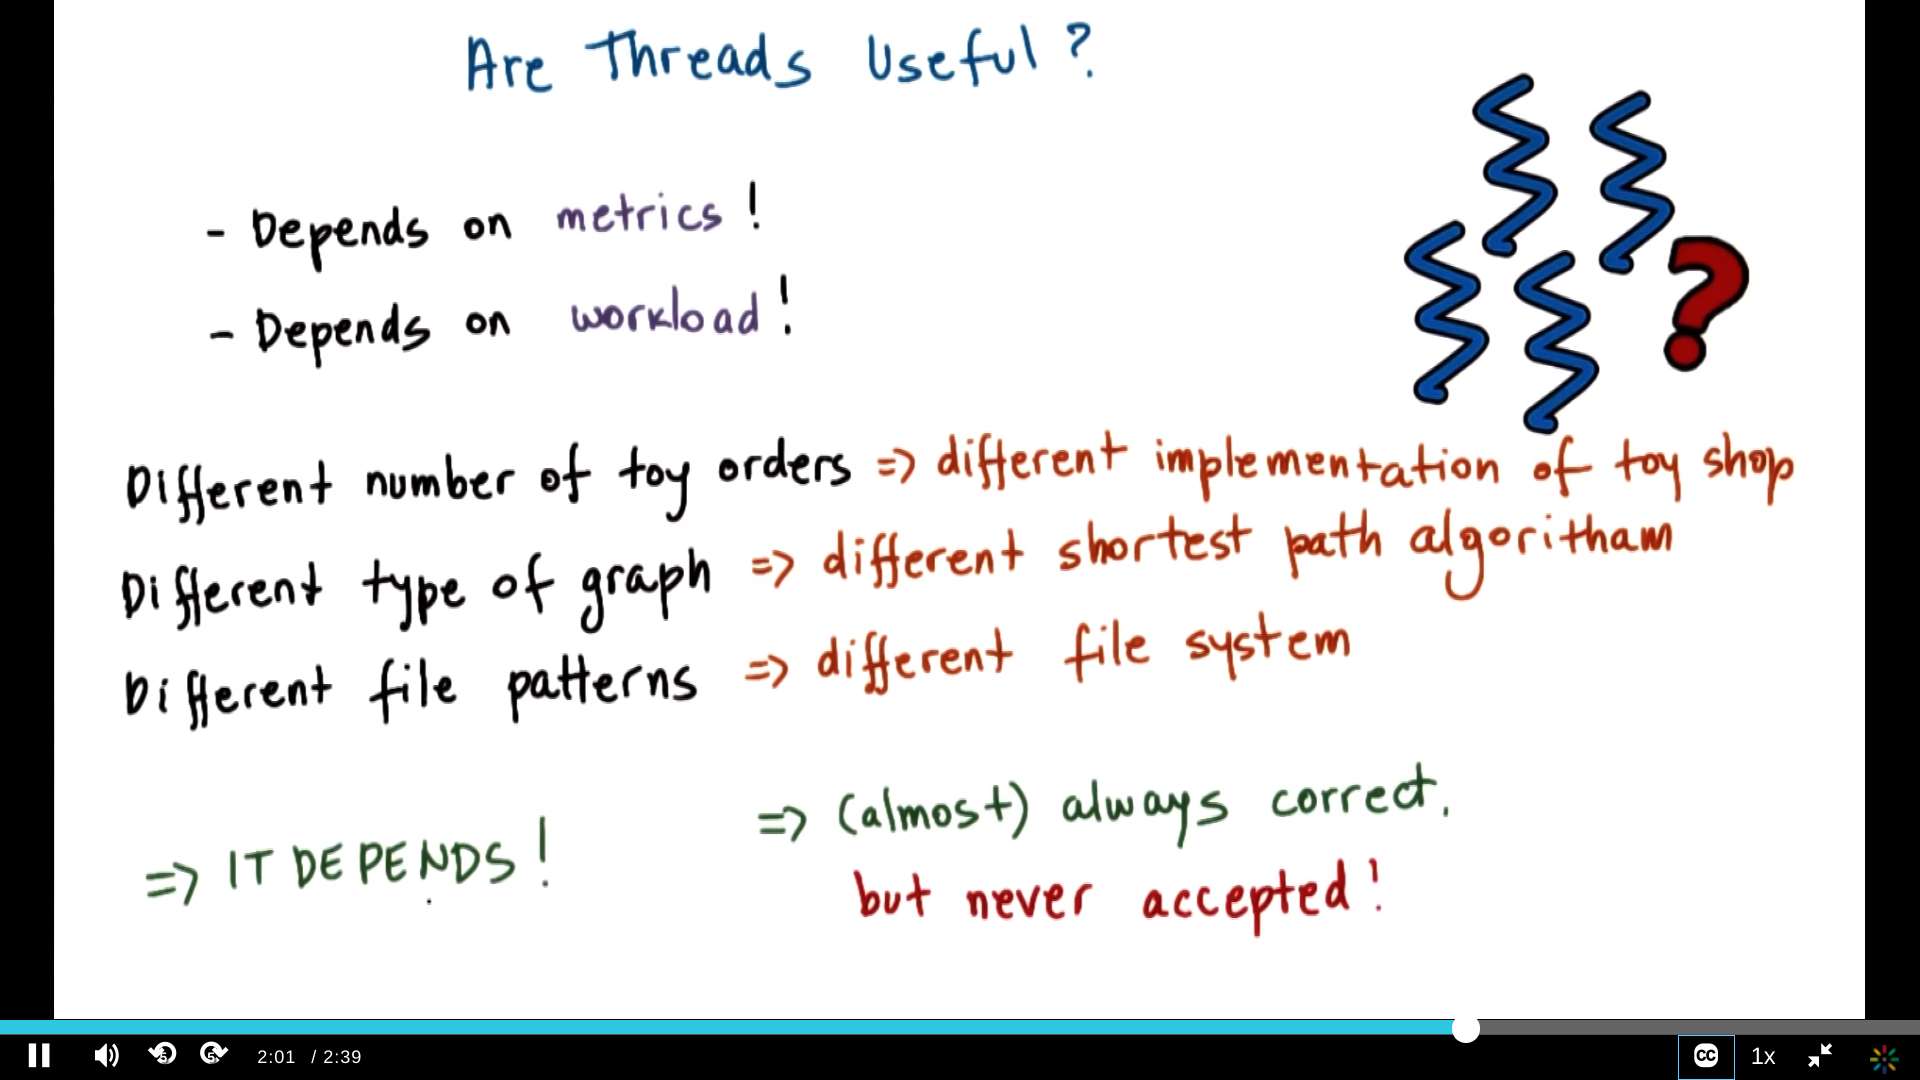 Are Threads Useful?
- Depends on metrics!
- Depends on workload!
Different number of toy orders => different implementation of toy shop
Different type of graph => different shortest path algoritham
Different file patterns => different file system
=> IT DEPENDS!
=> (almost) always correct.
but never accepted!
5 5 2:01 / 2:39 CC 1x